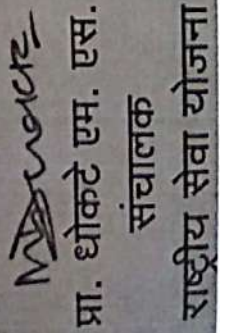 प्रा. धोकटे एम. एस.
संचालक
राष्ट्रीय सेवा योजना